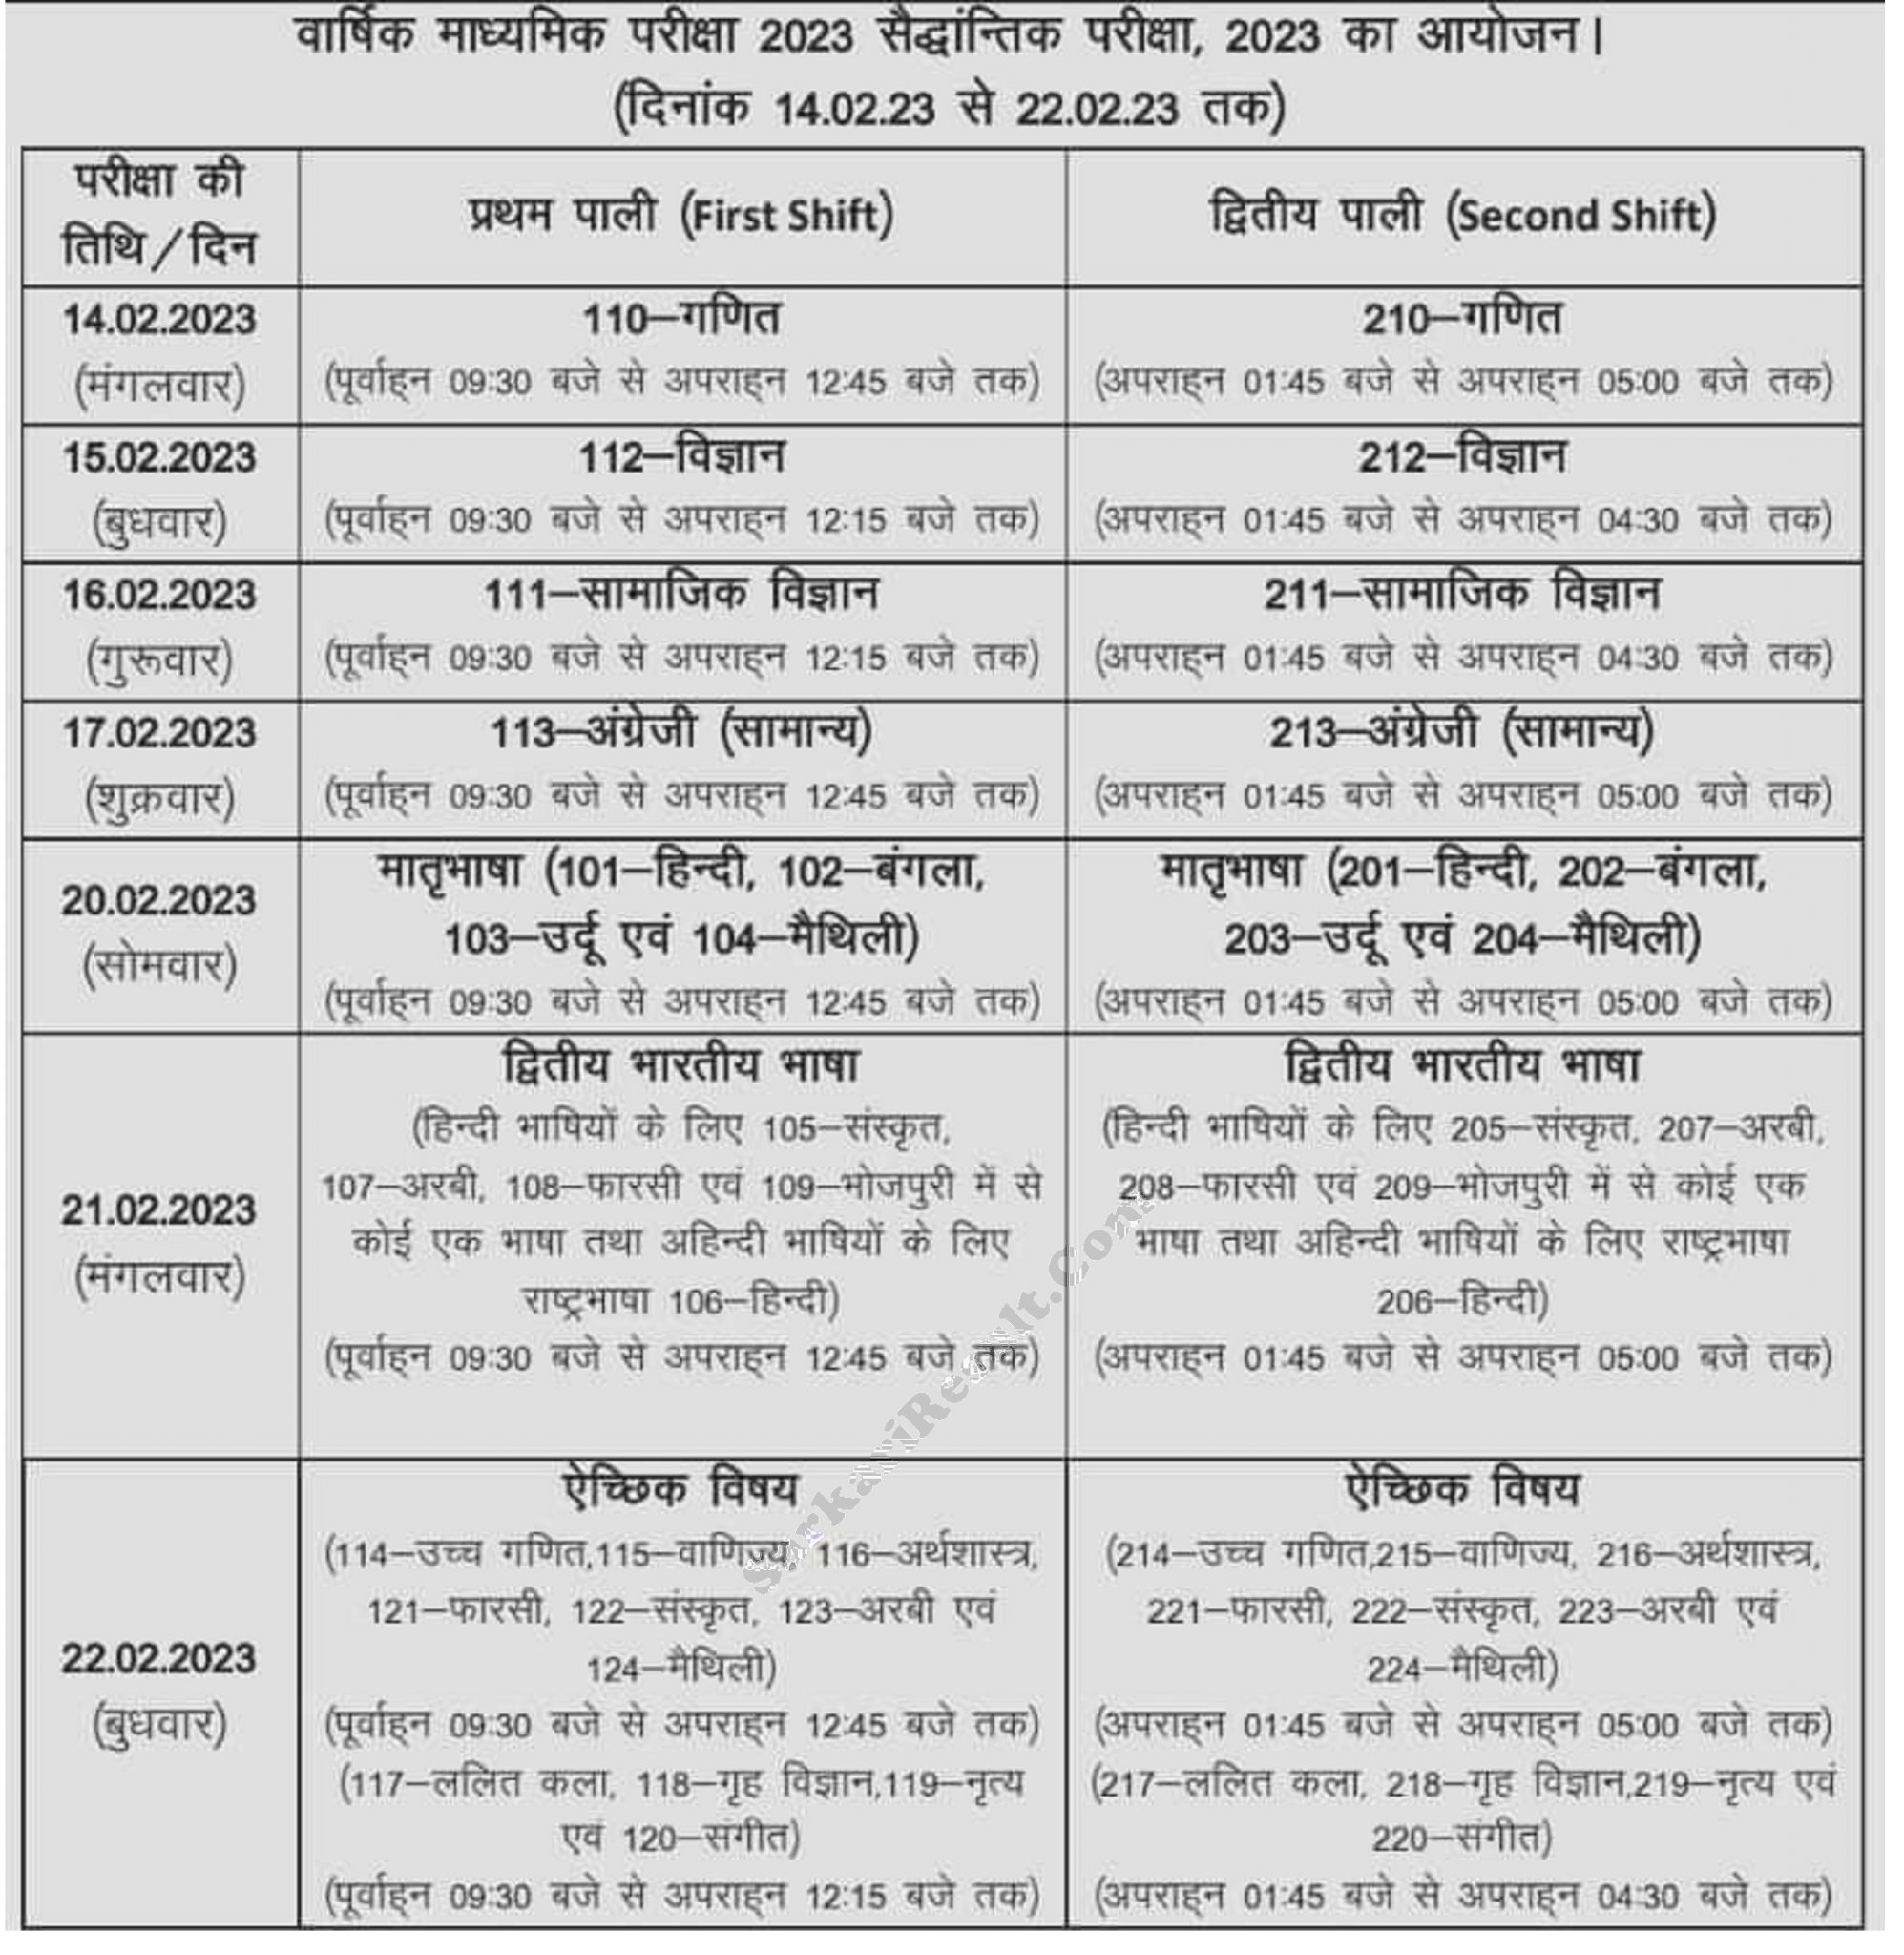 वार्षिक माध्यमिक परीक्षा 2023 सैद्धांन्तिक परीक्षा, 2023 का आयोजन।
(दिनांक 14.02.23 से 22.02.23 तक)
परीक्षा की
तिथि/दिन
प्रथम पाली (First Shift)
द्वितीय पाली (Second Shift)
14.02.2023
(मंगलवार)
110–गणित
(पूर्वाह्न 09:30 बजे से अपराह्न 12:45 बजे तक)
210–गणित
(अपराह्न 01:45 बजे से अपराह्न 05:00 बजे तक)
15.02.2023
(बुधवार)
112–विज्ञान
(पूर्वाह्न 09:30 बजे से अपराह्न 12:15 बजे तक)
212–विज्ञान
(अपराह्न 01:45 बजे से अपराह्न 04:30 बजे तक)
16.02.2023
(गुरूवार)
111–सामाजिक विज्ञान
(पूर्वाह्न 09:30 बजे से अपराह्न 12:15 बजे तक)
211–सामाजिक विज्ञान
(अपराह्न 01:45 बजे से अपराह्न 04:30 बजे तक)
17.02.2023
(शुक्रवार)
113–अंग्रेजी (सामान्य)
(पूर्वाह्न 09:30 बजे से अपराह्न 12:45 बजे तक)
213–अंग्रेजी (सामान्य)
(अपराह्न 01:45 बजे से अपराह्न 05:00 बजे तक)
20.02.2023
(सोमवार)
मातृभाषा (101–हिन्दी, 102–बंगला,
103–उर्दू एवं 104–मैथिली)
(पूर्वाह्न 09:30 बजे से अपराह्न 12:45 बजे तक)
मातृभाषा (201–हिन्दी, 202–बंगला,
203–उर्दू एवं 204–मैथिली)
(अपराह्न 01:45 बजे से अपराह्न 05:00 बजे तक)
21.02.2023
(मंगलवार)
द्वितीय भारतीय भाषा
(हिन्दी भाषियों के लिए 105–संस्कृत,
107–अरबी, 108–फारसी एवं 109–भोजपुरी में से
कोई एक भाषा तथा अहिन्दी भाषियों के लिए
राष्ट्रभाषा 106–हिन्दी)
(पूर्वाह्न 09:30 बजे से अपराह्न 12:45 बजे तक)
द्वितीय भारतीय भाषा
(हिन्दी भाषियों के लिए 205–संस्कृत, 207–अरबी,
208–फारसी एवं 209–भोजपुरी में से कोई एक
भाषा तथा अहिन्दी भाषियों के लिए राष्ट्रभाषा
206–हिन्दी)
(अपराह्न 01:45 बजे से अपराह्न 05:00 बजे तक)
22.02.2023
(बुधवार)
ऐच्छिक विषय
(114–उच्च गणित,115–वाणिज्य, 116–अर्थशास्त्र,
121–फारसी, 122–संस्कृत, 123–अरबी एवं
124–मैथिली)
(पूर्वाह्न 09:30 बजे से अपराह्न 12:45 बजे तक)
(117–ललित कला, 118–गृह विज्ञान,119–नृत्य
एवं 120–संगीत)
(पूर्वाह्न 09:30 बजे से अपराह्न 12:15 बजे तक)
ऐच्छिक विषय
(214–उच्च गणित,215–वाणिज्य, 216–अर्थशास्त्र,
221–फारसी, 222–संस्कृत, 223–अरबी एवं
224–मैथिली)
(अपराह्न 01:45 बजे से अपराह्न 05:00 बजे तक)
(217–ललित कला, 218–गृह विज्ञान,219–नृत्य एवं
220–संगीत)
(अपराह्न 01:45 बजे से अपराह्न 04:30 बजे तक)
SarkariResult.Com